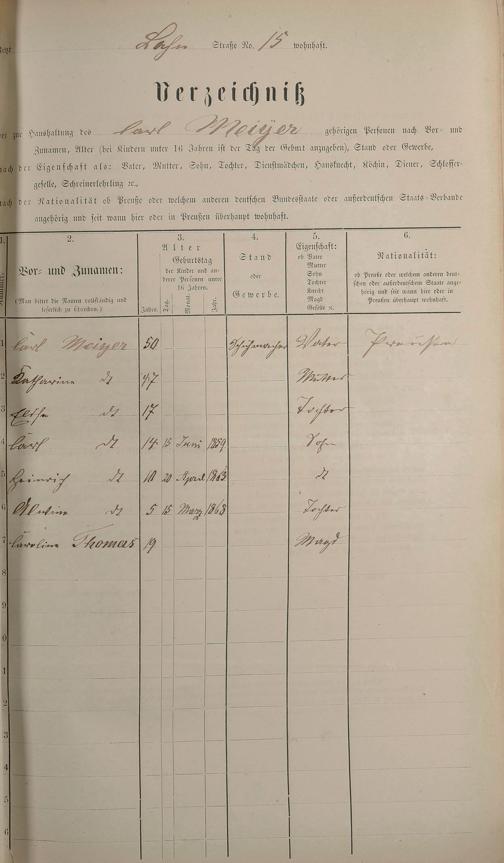 Lahn Straße No. 15 wohnhaft.
Verzeichniß
der zur Haushaltung des Carl Meiyer gehörigen Personen nach Vor- und
Zunamen, Alter (bei Kindern unter 16 Jahren ist der Tag der Geburt anzugeben), Stand oder Gewerbe,
nach der Eigenschaft als: Vater, Mutter, Sohn, Tochter, Dienstmädchen, Hausknecht, Köchin, Diener, Schlosser-
geselle, Schreinerlehrling ꝛc.,
nach der Nationalität ob Preuße oder welchem anderen deutschen Bundesstaate oder außerdeutschen Staats-Verbande
angehörig und seit wann hier oder in Preußen überhaupt wohnhaft.
1. 2. 3. 4. 5. 6.
Vor- und Zunamen:
(Man bittet die Namen vollständig und
leserlich zu schreiben.)
Alter
Geburtstag
der Kinder und an-
derer Personen unter
16 Jahren.
Jahre. Tag. Monat. Jahr.
Stand
oder
Gewerbe.
Eigenschaft:
ob Vater
Mutter
Sohn
Tochter
Knecht
Magd
Geselle ꝛc.
Nationalität:
ob Preuße oder welchem anderen deut-
schen oder außerdeutschen Staate ange-
hörig und seit wann hier oder in
Preußen überhaupt wohnhaft.
1 Carl Meiyer 50 Schuhmacher Vater Preussen
2 Katharine dt 47 Mutter
3 Elise dt 17 Tochter
4 Carl dt 14 15 Juni 1859 Sohn
5 Heinrich dt 10 20 April 1863 dt
6 Alwine dt 5 15 März 1868 Tochter
7 Caroline Thomas 19 Magd
8
9
0
1
2
3
4
5
6